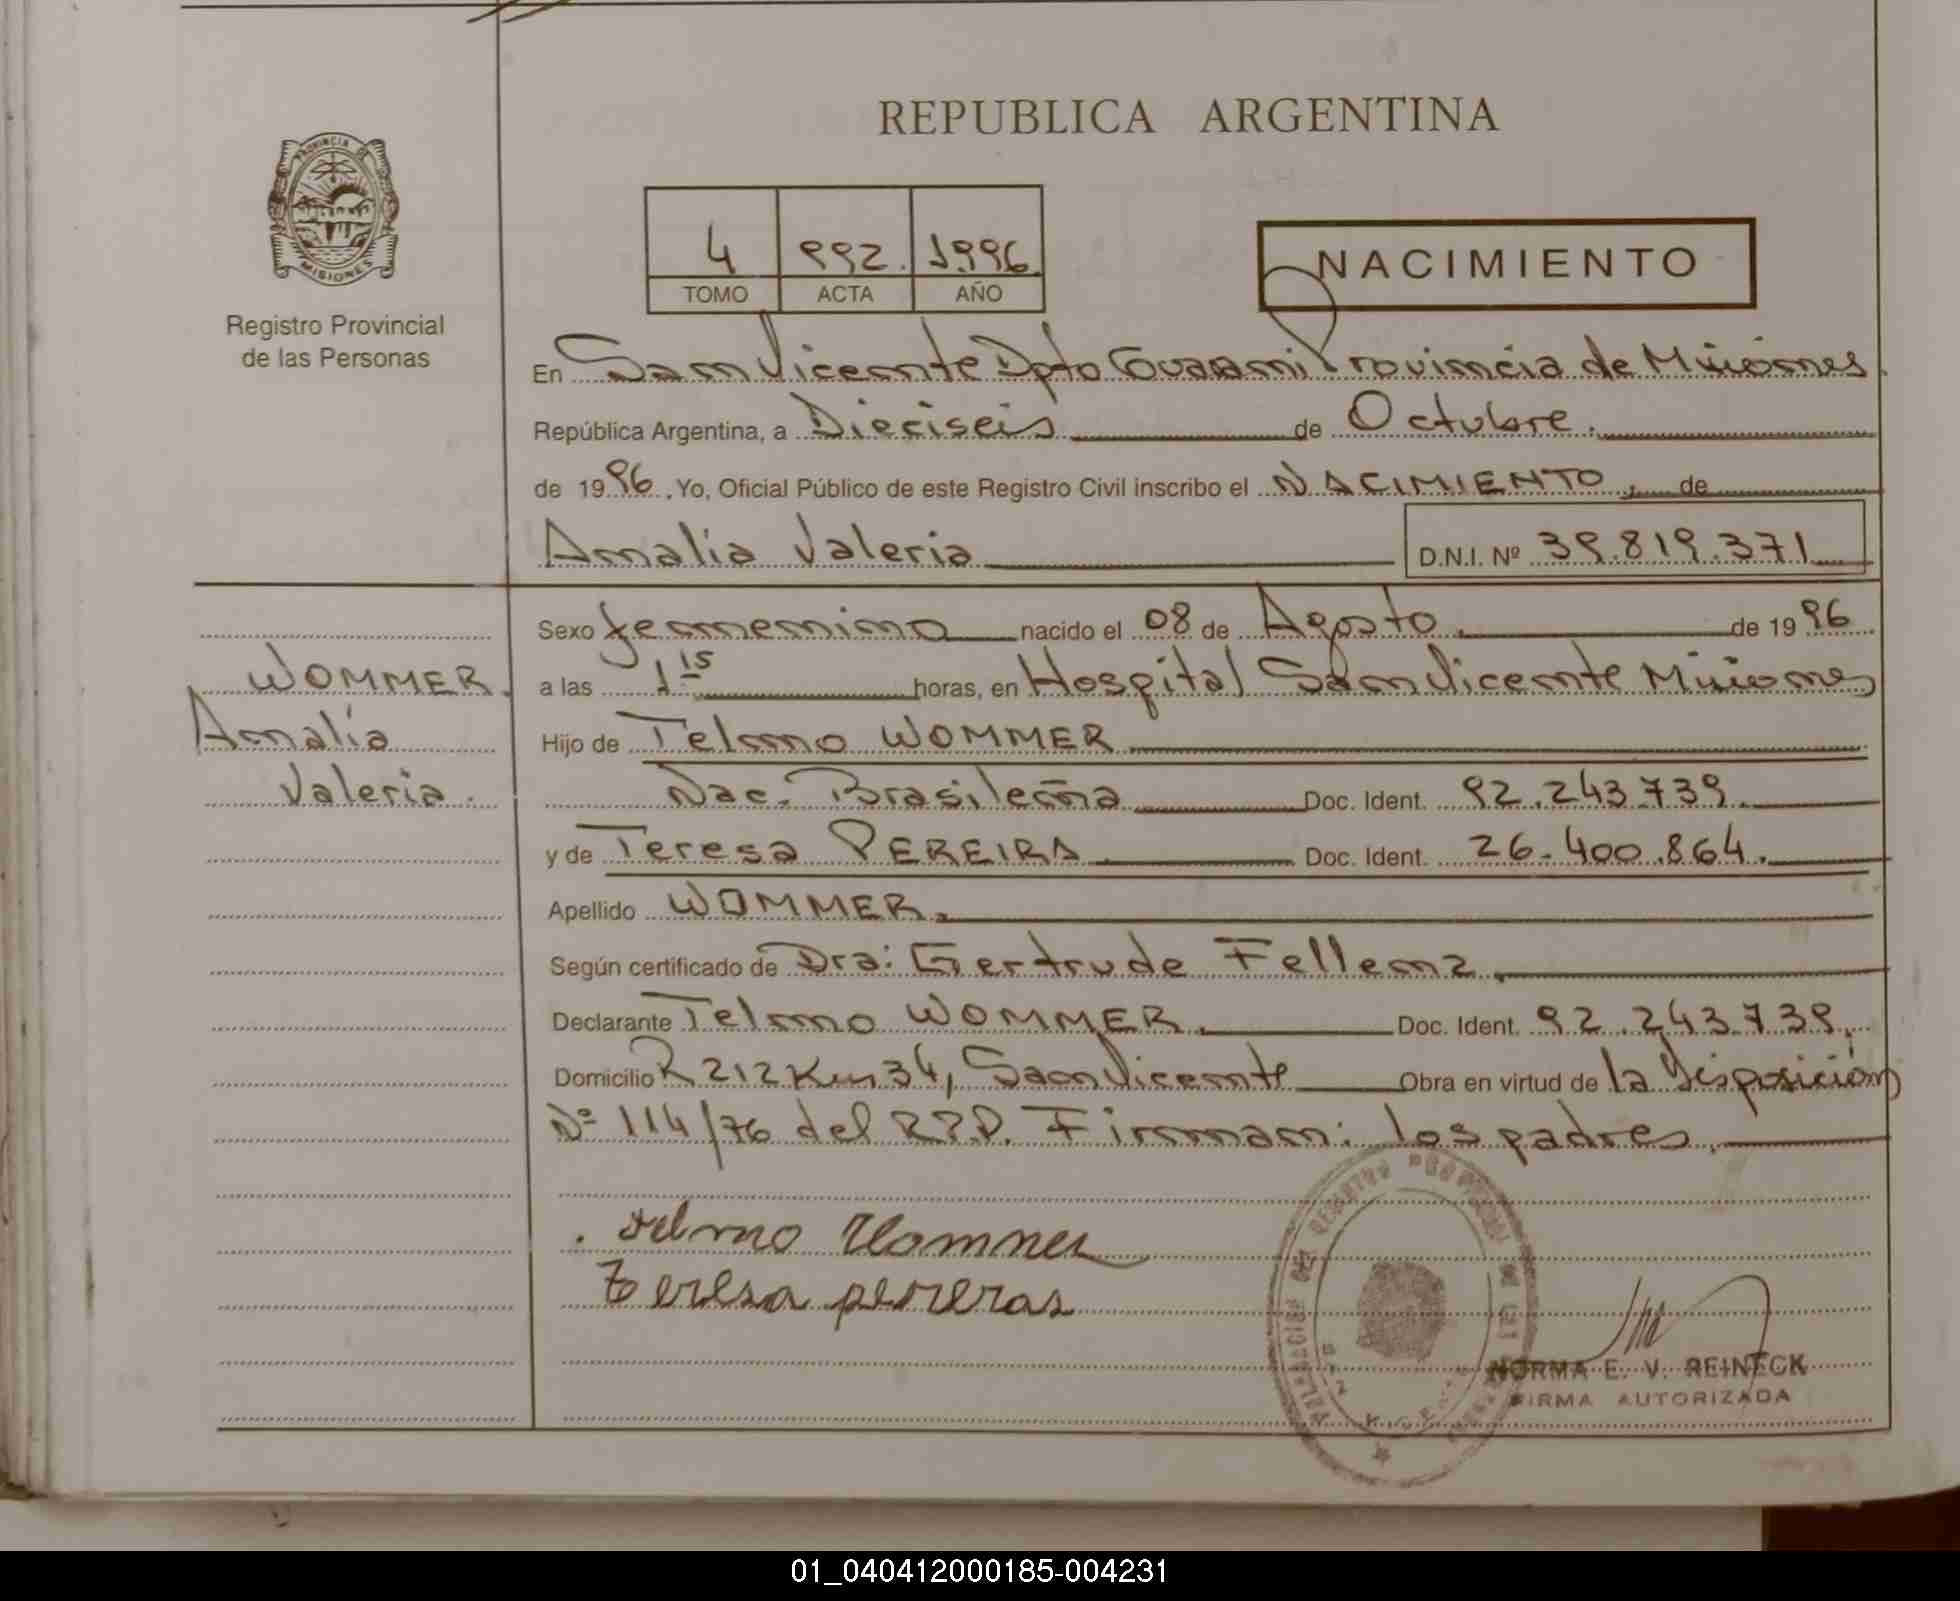 REPUBLICA ARGENTINA
PROVINCIA DE
MISIONES
Registro Provincial
de las Personas
4 992. 1996
TOMO ACTA AÑO
NACIMIENTO
En San Vicente Dpto Guarani Provincia de Misiones
República Argentina, a Dieciseis de Octubre.
de 1996, Yo, Oficial Público de este Registro Civil inscribo el NACIMIENTO, de
Amalia Valeria D.N.I. Nº 39.819.371
Sexo femenino nacido el 08 de Agosto. de 1996
a las 1 15 horas, en Hospital San Vicente Misiones
Hijo de Telmo WOMMER
Nac. Brasileña Doc. Ident. 92.243.739.
y de Teresa PEREIRA Doc. Ident. 26.400.864.
Apellido WOMMER.
Según certificado de Dra: Gertrude Fellenz.
Declarante Telmo WOMMER. Doc. Ident. 92.243.739.
Domicilio R 212 Km 34, San Vicente Obra en virtud de la Disposición
Nº 114/76 del R.P.P. Firman: los padres.
WOMMER.
Amalia
Valeria.
Telmo Wommer
Teresa pereras
NORMA E. V. REINECK
FIRMA AUTORIZADA
01_040412000185-004231